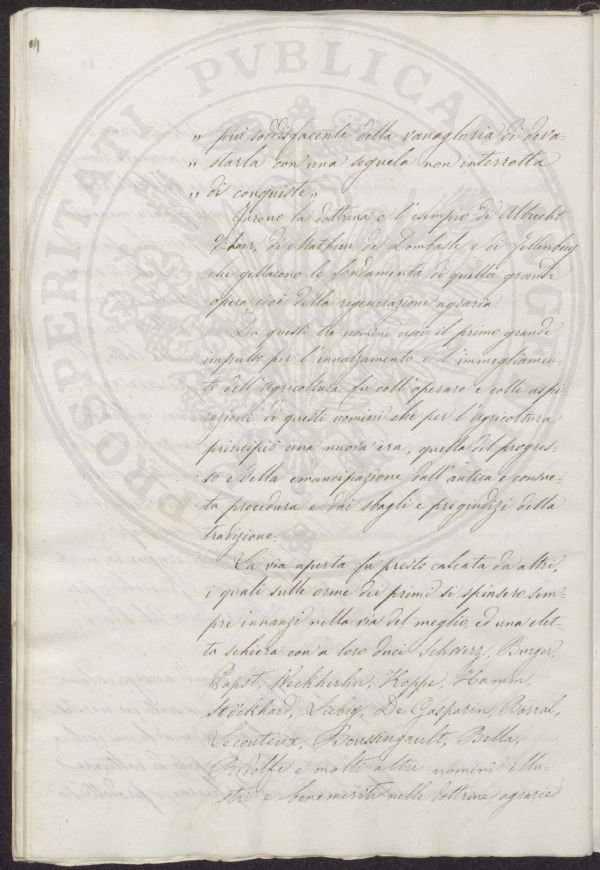 PROSPERITATI PVBLICAE
„ più soddisfacente della vanagloria di deva=
„ starla con una seguela non interrotta
„ di conquiste„
Furono la dottrina e l'esempio di Albrecht
Thaer, di Mathieu de Dombasle e di Fellenberg
che gettarono le fondamenta di quella grande
opera cioè della regenerazione agraria.
Da questi tre uomini uscì il primo grande
impulso per l'innalzamento e l'immegliamen=
to dell'agricoltura, fu coll'operare e colle aspi=
razioni di questi uomini che per l'agricoltura
principiò una nuova era, quella del progres=
so e della emancipazione dall'antica e consue=
ta procedura e dai sbagli e pregiudizi della
tradizione.
La via aperta fu presto calcata da altri,
i quali sulle orme dei primi si spinsero sem=
pre innanzi nella via del meglio, ed una elet=
ta schiera con a loro duci Schwerz, Burger,
Pabst, Weckherlin, Koppe, Hamm,
Stöckhard, Liebig, De Gasparin, Barral,
Lecouteux, Boussingault, Bella,
Ridolfi e molti altri uomini illu=
stri e benemeriti nelle dottrine agrarie